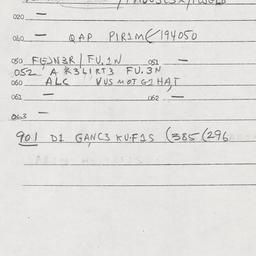 020 —
040 — QAP PIR1M(/194050
050 FEJN3R/FU.1N 051 —
052 A R3LIRT3 FU.3N
060 ALC VUSMOTG1HAT
061 — 062 —
063 —
901 D1 GANC3 KU.F1S (385(296